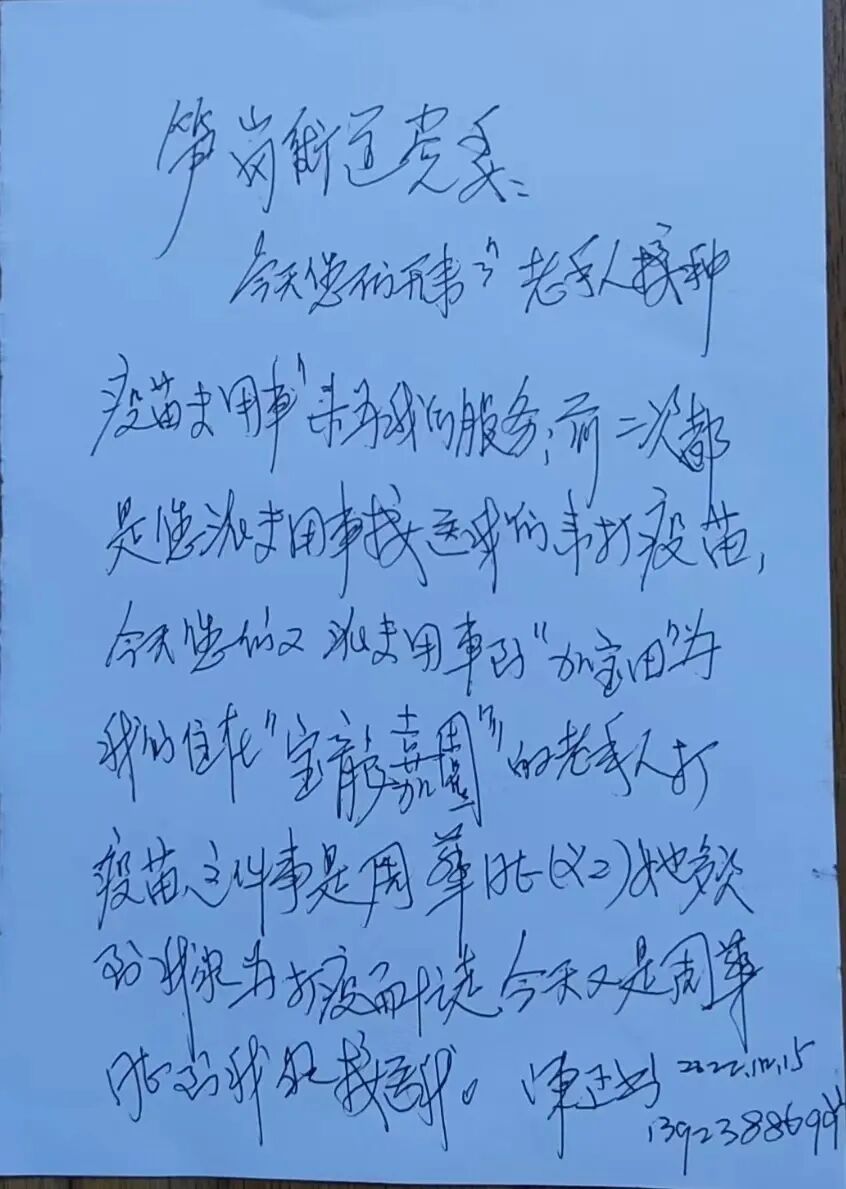 笋岗街道党委:
今天您们开车"老年人接种
疫苗专用车"来为我们服务,前二次都
是您派专用车接送我们来打疫苗,
今天您们又派专用车到"加宝田"为
我们住在"宝龍嘉園"的老年人打
疫苗,这件事是周華(义工)她多次
到我家为打疫苗 今天又是周華
到我 接送我。 陳 2022.12.15